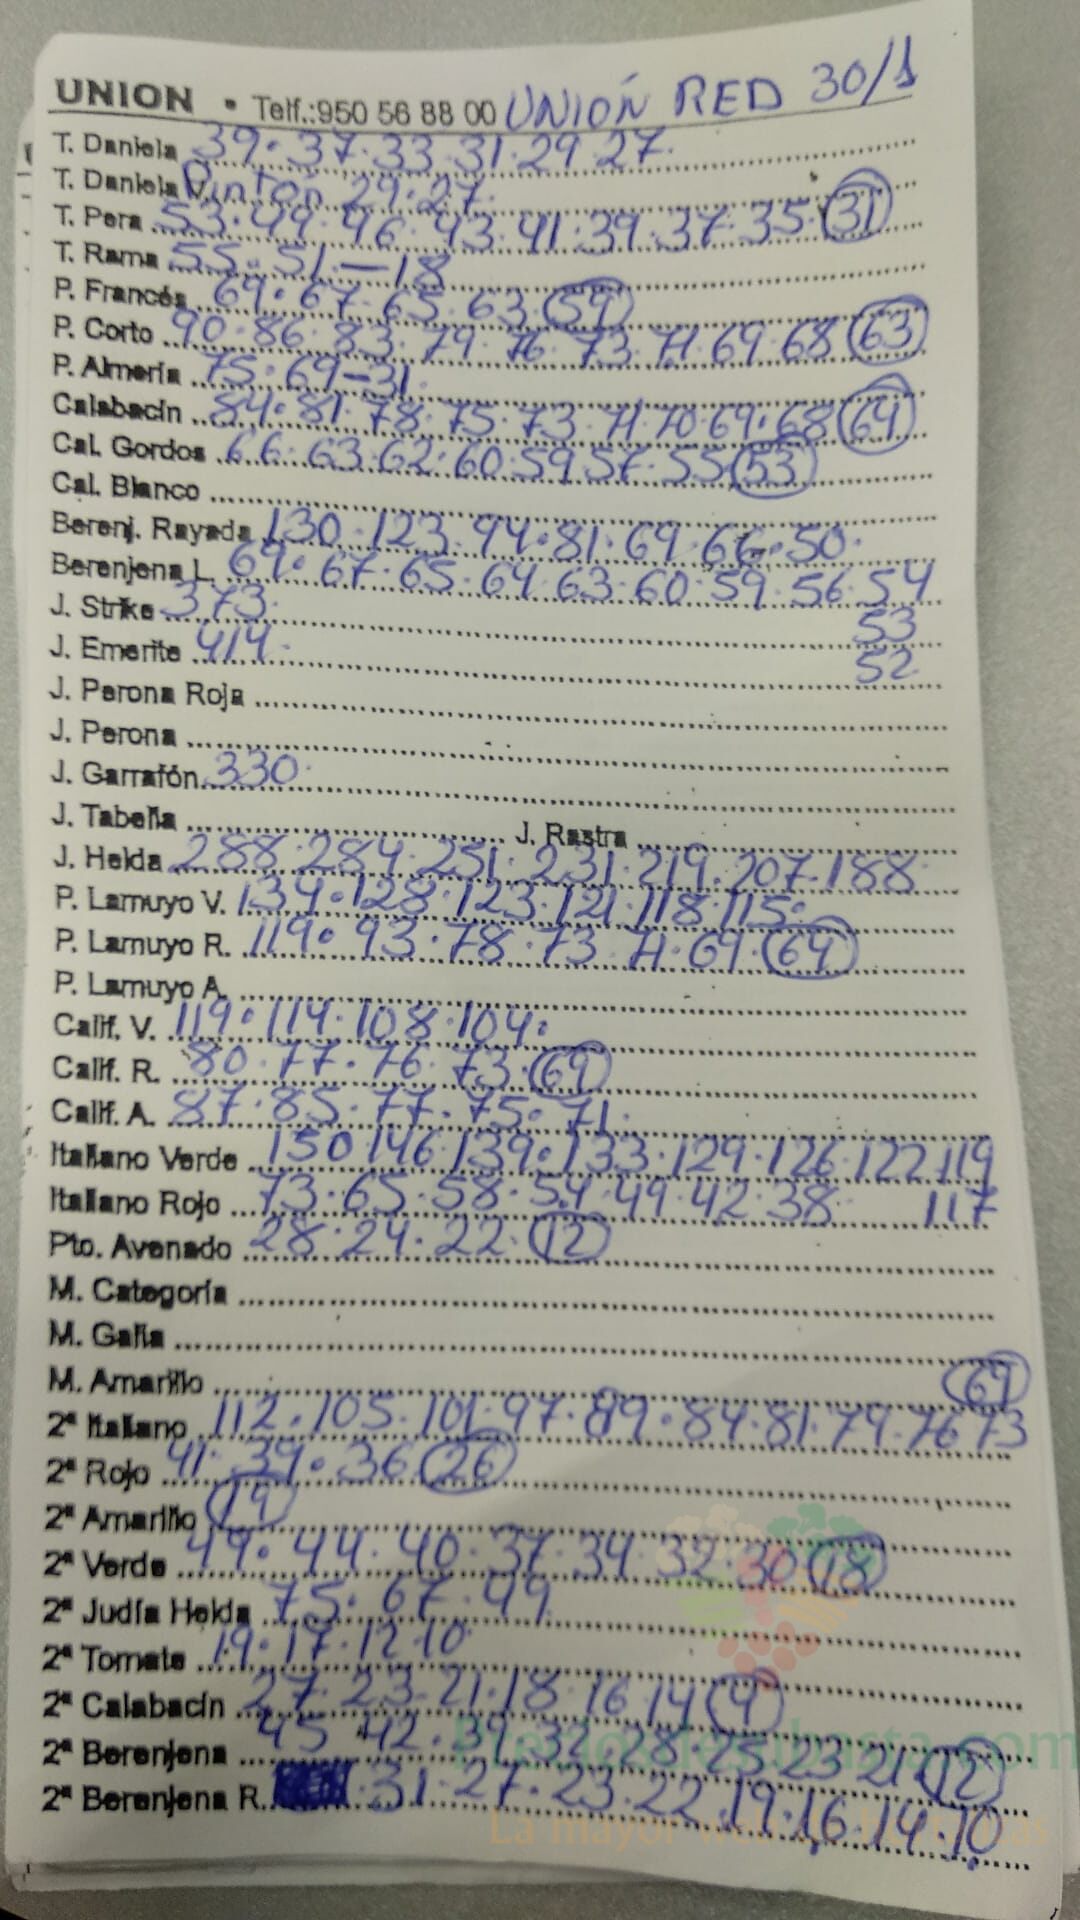 UNION • Telf.:950 56 88 00 UNIÓN RED 30/1
T. Daniela 39.37.33.31.29.27.
T. Daniela V. Pintón 29.27.
T. Pera 53.49.46.43.41.39.37.35.31
T. Rama 55.51.-18
P. Francés 69.67.65.63.59
P. Corto 90.86.83.79.76.73.71.69.68 63
P. Almería 75.69-31.
Calabacín 84.81.78.75.73.71.70.69.68 64
Cal. Gordos 66.63.62.60.59.57.55 53
Cal. Blanco
Berenj. Rayada 130.123.94.81.69.66.50.
Berenjena L. 69.67.65.64.63.60.59.56.54
J. Strike 373. 53
J. Emerite 414. 52
J. Perona Roja
J. Perona
J. Garrafón 330.
J. Tabella J. Rastra
J. Helda 288.284.251.231.219.207.188
P. Lamuyo V. 134.128.123.121.118.115.
P. Lamuyo R. 119.93.78.73.71.69.64
P. Lamuyo A.
Calif. V. 119.114.108.104.
Calif. R. 80.77.76.73.69
Calif. A. 87.85.77.75.71.
Italiano Verde 150.146.139.133.129.126.122.119
Italiano Rojo 73.65.58.54.49.42.38 117
Pto. Avenado 28.24.22.12
M. Categoría
M. Galia
M. Amarillo 69
2ª Italiano 112.105.101.97.89.84.81.79.76 73
2ª Rojo 41.39.36.26
2ª Amarillo 19
2ª Verde 49.44.40.37.34.32.30 18
2ª Judía Helda 75.67.49
2ª Tomate 19.17.12.10
2ª Calabacín 27.23.21.18.16.14 9
2ª Berenjena 45.42.39.32.28.25.23.21 12
2ª Berenjena R. 31.27.23.22.19.16.14.10